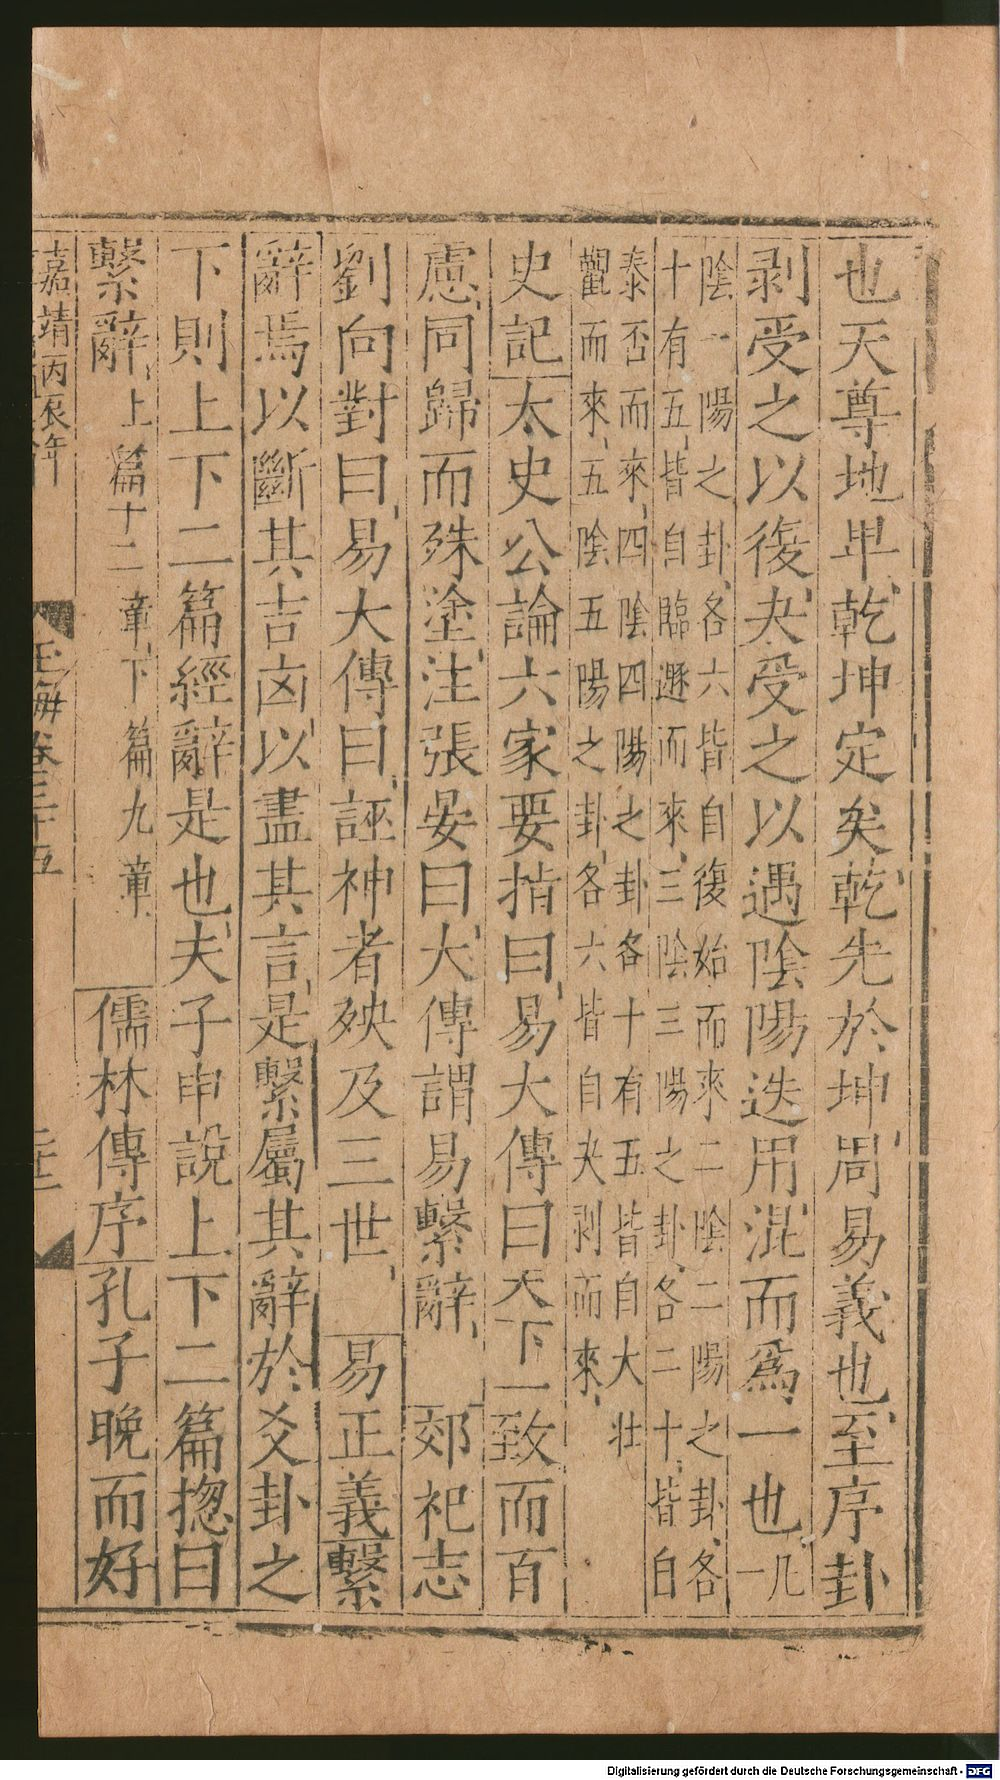 也天尊地卑乾坤定矣乾先於坤周易義也至序卦
剥受之以復夬受之以遇陰陽迭用混而爲一也凡一
陰一陽之卦各六皆自復始而來二陰二陽之卦各
十有五皆自臨遯而來三陰三陽之卦各二十皆白
泰否而來四陰四陽之卦各十有五皆自大壯
觀而來五陰五陽之卦各六皆自夬剥而來
史記太史公論六家要指曰易大傳曰天下一致而百
慮同歸而殊塗注張晏曰大傳謂易繫辭 郊祀志
劉向對曰易大傳曰誣神者殃及三世 易正義繫
辭焉以斷其吉凶以盡其言是繫屬其辭於爻卦之
下則上下二篇經辭是也夫子申說上下二篇揔曰
繫辭上篇十二章下篇九章 儒林傳序孔子晚而好
嘉靖丙辰年
玉海卷三十五
Digitalisierung gefördert durch die Deutsche Forschungsgemeinschaft - DFG